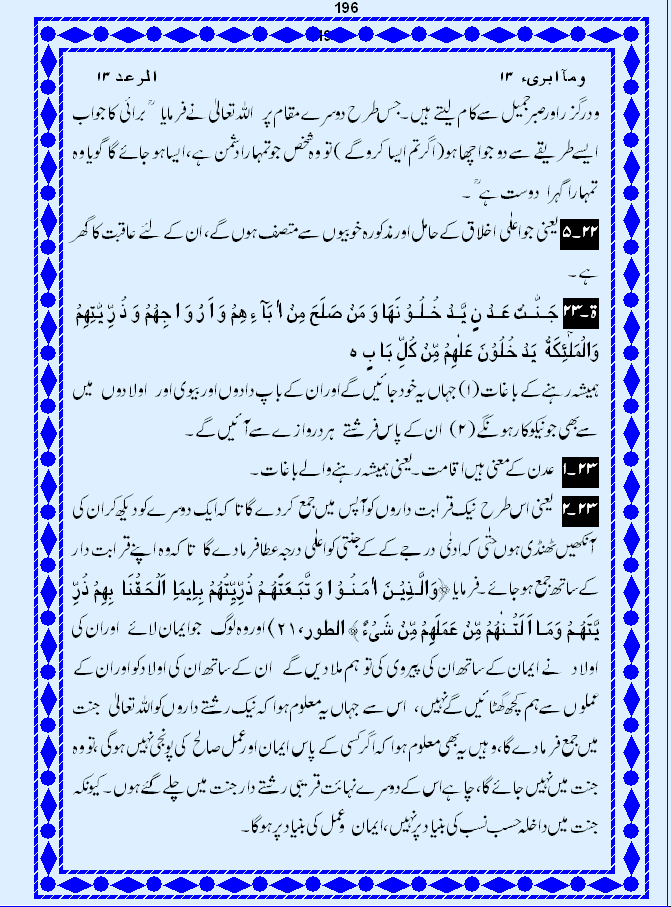 196
وما آبری، ۱۳ الرعد ۱۳
ودرگزر اور صبر جمیل سے کام لیتے ہیں۔ جس طرح دوسرے مقام پر اللہ تعالیٰ نے فرمایا ؒ برائی کا جواب
ایسے طریقے سے دو جو اچھا ہو (اگر تم ایسا کرو گے) تو وہ شخص جو تمہارا دشمن ہے، ایسا ہو جائے گا گویا وہ
تمہارا گہرا دوست ہے ؒ ۔
۲۲۔۵ یعنی جو اعلٰی اخلاق کے حامل اور مذکورہ خوبیوں سے متصف ہوں گے، ان کے لئے عاقبت کا گھر
ہے۔
ۃ۔۲۳ جَنّٰتُ عَدْنٍ يَّدْ خُلُوْنَهَا وَ مَنْ صَلَحَ مِنْ اٰبَآءِ هِمْ وَ اَرْوَاجِهِمْ وَ ذُرِّيّٰتِهِمْ
وَالْمَلٰٓئِكَةُ يَدْ خُلُوْنَ عَلَهِمْ مِّنْ كُلِّ بَا بٍ ہ
ہمیشہ رہنے کے باغات (۱) جہاں یہ خود جائیں گے اور ان کے باپ دادوں اور بیوی اور اولادوں میں
سے بھی جو نیکوکار ہونگے (۲) ان کے پاس فرشتے ہر دروازے سے آئیں گے۔
۲۳۔۱ عدن کے معنی ہیں اقامت۔ یعنی ہمیشہ رہنے والے باغات۔
۲۳۔۲ یعنی اس طرح نیک قرابت داروں کو آپس میں جمع کر دے گا تاکہ ایک دوسرے کو دیکھ کر ان کی
آنکھیں ٹھنڈی ہوں حتٰی کہ ادنٰی درجے کے جنتی کو اعلی درجہ عطا فرما دے گا تا کہ وہ اپنے قرابت دار
کے ساتھ جمع ہو جائے۔ فرمایا ﴿وَالَّذِيْنَ اٰمَنُوْا وَ تَّبَعَتْهُمْ ذُرِّيَّتُهُمْ بِاِيمَا اَلْحَقْنَا بِهِمْ ذُرِّ
يَّتَهُمْ وَمَا اَلَتْنٰهُمْ مِّنْ عَمَلِهِمْ مِّنْ شَىْءٍ﴾ الطور، ۲۱) اور وہ لوگ جو ایمان لائے اور ان کی
اولاد نے ایمان کے ساتھ ان کی پیروی کی تو ہم ملا دیں گے ان کے ساتھ ان کی اولاد کو اور ان کے
عملوں سے ہم کچھ گھٹائیں گے نہیں، اس سے جہاں یہ معلوم ہوا کہ نیک رشتے داروں کو اللہ تعالیٰ جنت
میں جمع فرما دے گا، وہیں یہ بھی معلوم ہوا کہ اگر کسی کے پاس ایمان اور عمل صالح کی پونجی نہیں ہوگی، تو وہ
جنت میں نہیں جائے گا، چاہے اس کے دوسرے نہائت قریبی رشتے دار جنت میں چلے گئے ہوں۔ کیونکہ
جنت میں داخلہ حسب نسب کی بنیاد پر نہیں، ایمان و عمل کی بنیاد پر ہوگا۔